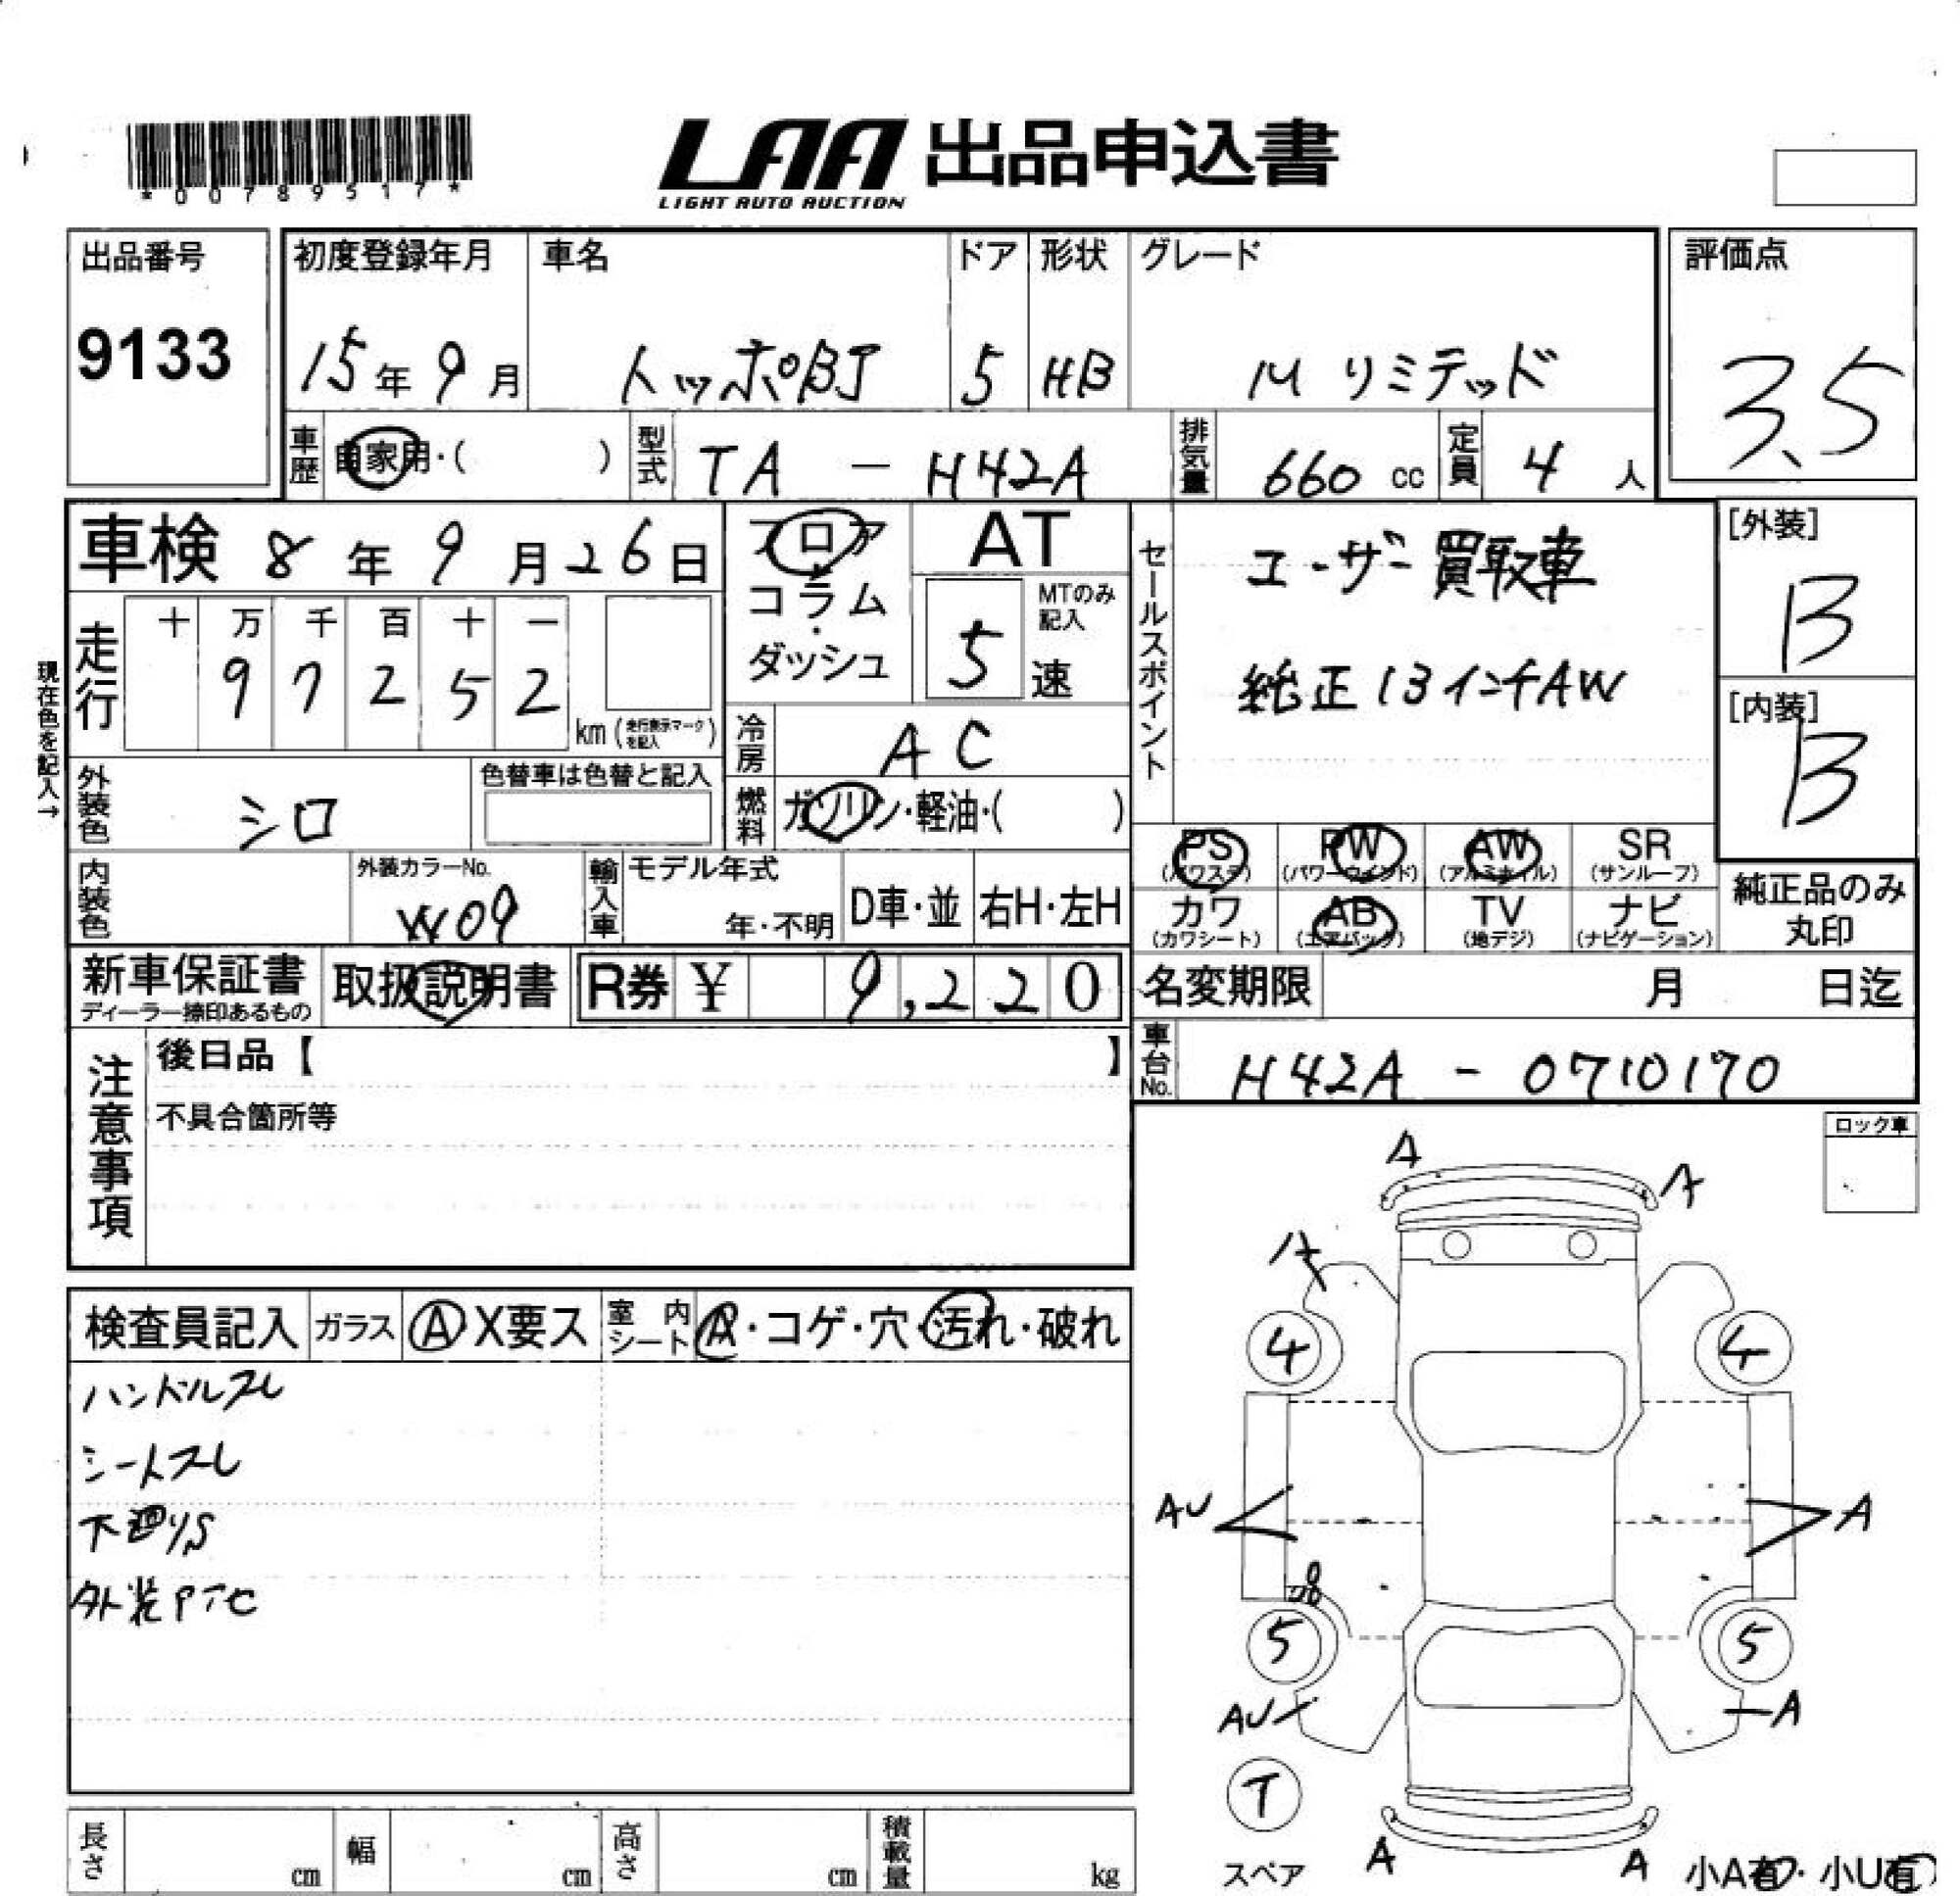 *00789517*
LAA 出品申込書
LIGHT AUTO AUCTION
出品番号
9133
初度登録年月
15年 9月
車名
トッポBJ
ドア
5
形状
HB
グレード
M リミテッド
評価点
3.5
車歴 自家用・( )
型式 TA - H42A
排気量 660 cc
定員 4 人
車検 8年 9月 26日
フロア
コラム
・
ダッシュ
AT
MTのみ
記入
5 速
セールスポイント
ユーザー買取車
純正13インチAW
[外装]
B
[内装]
B
現在色を記入→
走行
十 万 千 百 十 一
9 7 2 5 2
km (走行表示マークを記入)
冷房 AC
外装色 シロ
色替車は色替と記入
燃料 ガソリン・軽油・( )
PS
(パワステ)
PW
(パワーウインド)
AW
(アルミホイル)
SR
(サンルーフ)
カワ
(カワシート)
AB
(エアバック)
TV
(地デジ)
ナビ
(ナビゲーション)
純正品のみ
丸印
内装色
外装カラーNo.
W09
輸入車
モデル年式
年・不明
D車・並
右H・左H
新車保証書
ディーラー捺印あるもの
取扱説明書
R券 ¥ 9,220
名変期限 月 日迄
車台No. H42A - 0710170
注意事項
後日品【 】
不具合箇所等
ロック車
検査員記入 ガラス A X要ス 室内シート A・コゲ・穴・汚れ・破れ
ハンドルスレ
シートスレ
下廻りS
外装PTC
A
A
A
4
4
AU
A
5
5
AU
A
T
スペア
A
A
小A有・小U有
長さ cm
幅 cm
高さ cm
積載量 kg